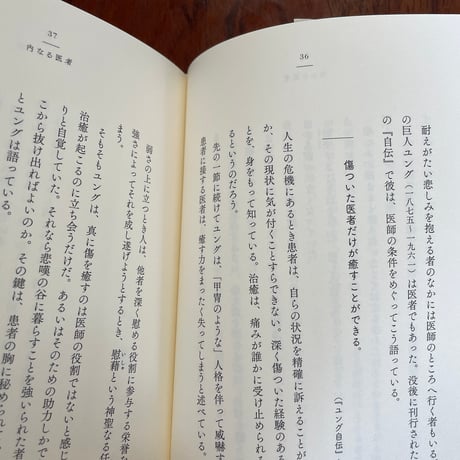 36
耐えがたい悲しみを抱える者のなかには医師のところへ行く者もいる。
の巨人ユング（一八七五～一九六一）は医者でもあった。没後に刊行された
の『自伝』で彼は、医師の条件をめぐってこう語っている。
傷ついた医者だけが癒すことができる。
（『ユング自伝』
人生の危機にあるとき患者は、自らの状況を精確に訴えることが
か、その現状に気が付くことすらできない。深く傷ついた経験のある
とを、身をもって知っている。治癒は、痛みが誰かに受け止められ
るというのだろう。
先の一節に続けてユングは、「甲冑のような」人格を伴って威嚇す
患者に接する医者は、癒す力をまったく失ってしまうと述べている。
37
内なる医者
弱さの上に立つとき人は、他者を深く慰める役割に参与する栄誉
強さによってそれを成し遂げようとするとき、慰藉という神聖なる任
いしゃ
まう。
そもそもユングは、真に傷を癒すのは医師の役割ではないと感じ
治癒が起こるのに立ち会うだけだ。あるいはそのための助力しかで
りと自覚していた。それなら悲嘆の谷に暮らすことを強いられた者
こから抜け出ればよいのか。その鍵は、患者の胸に秘められた
とユングは語っている。